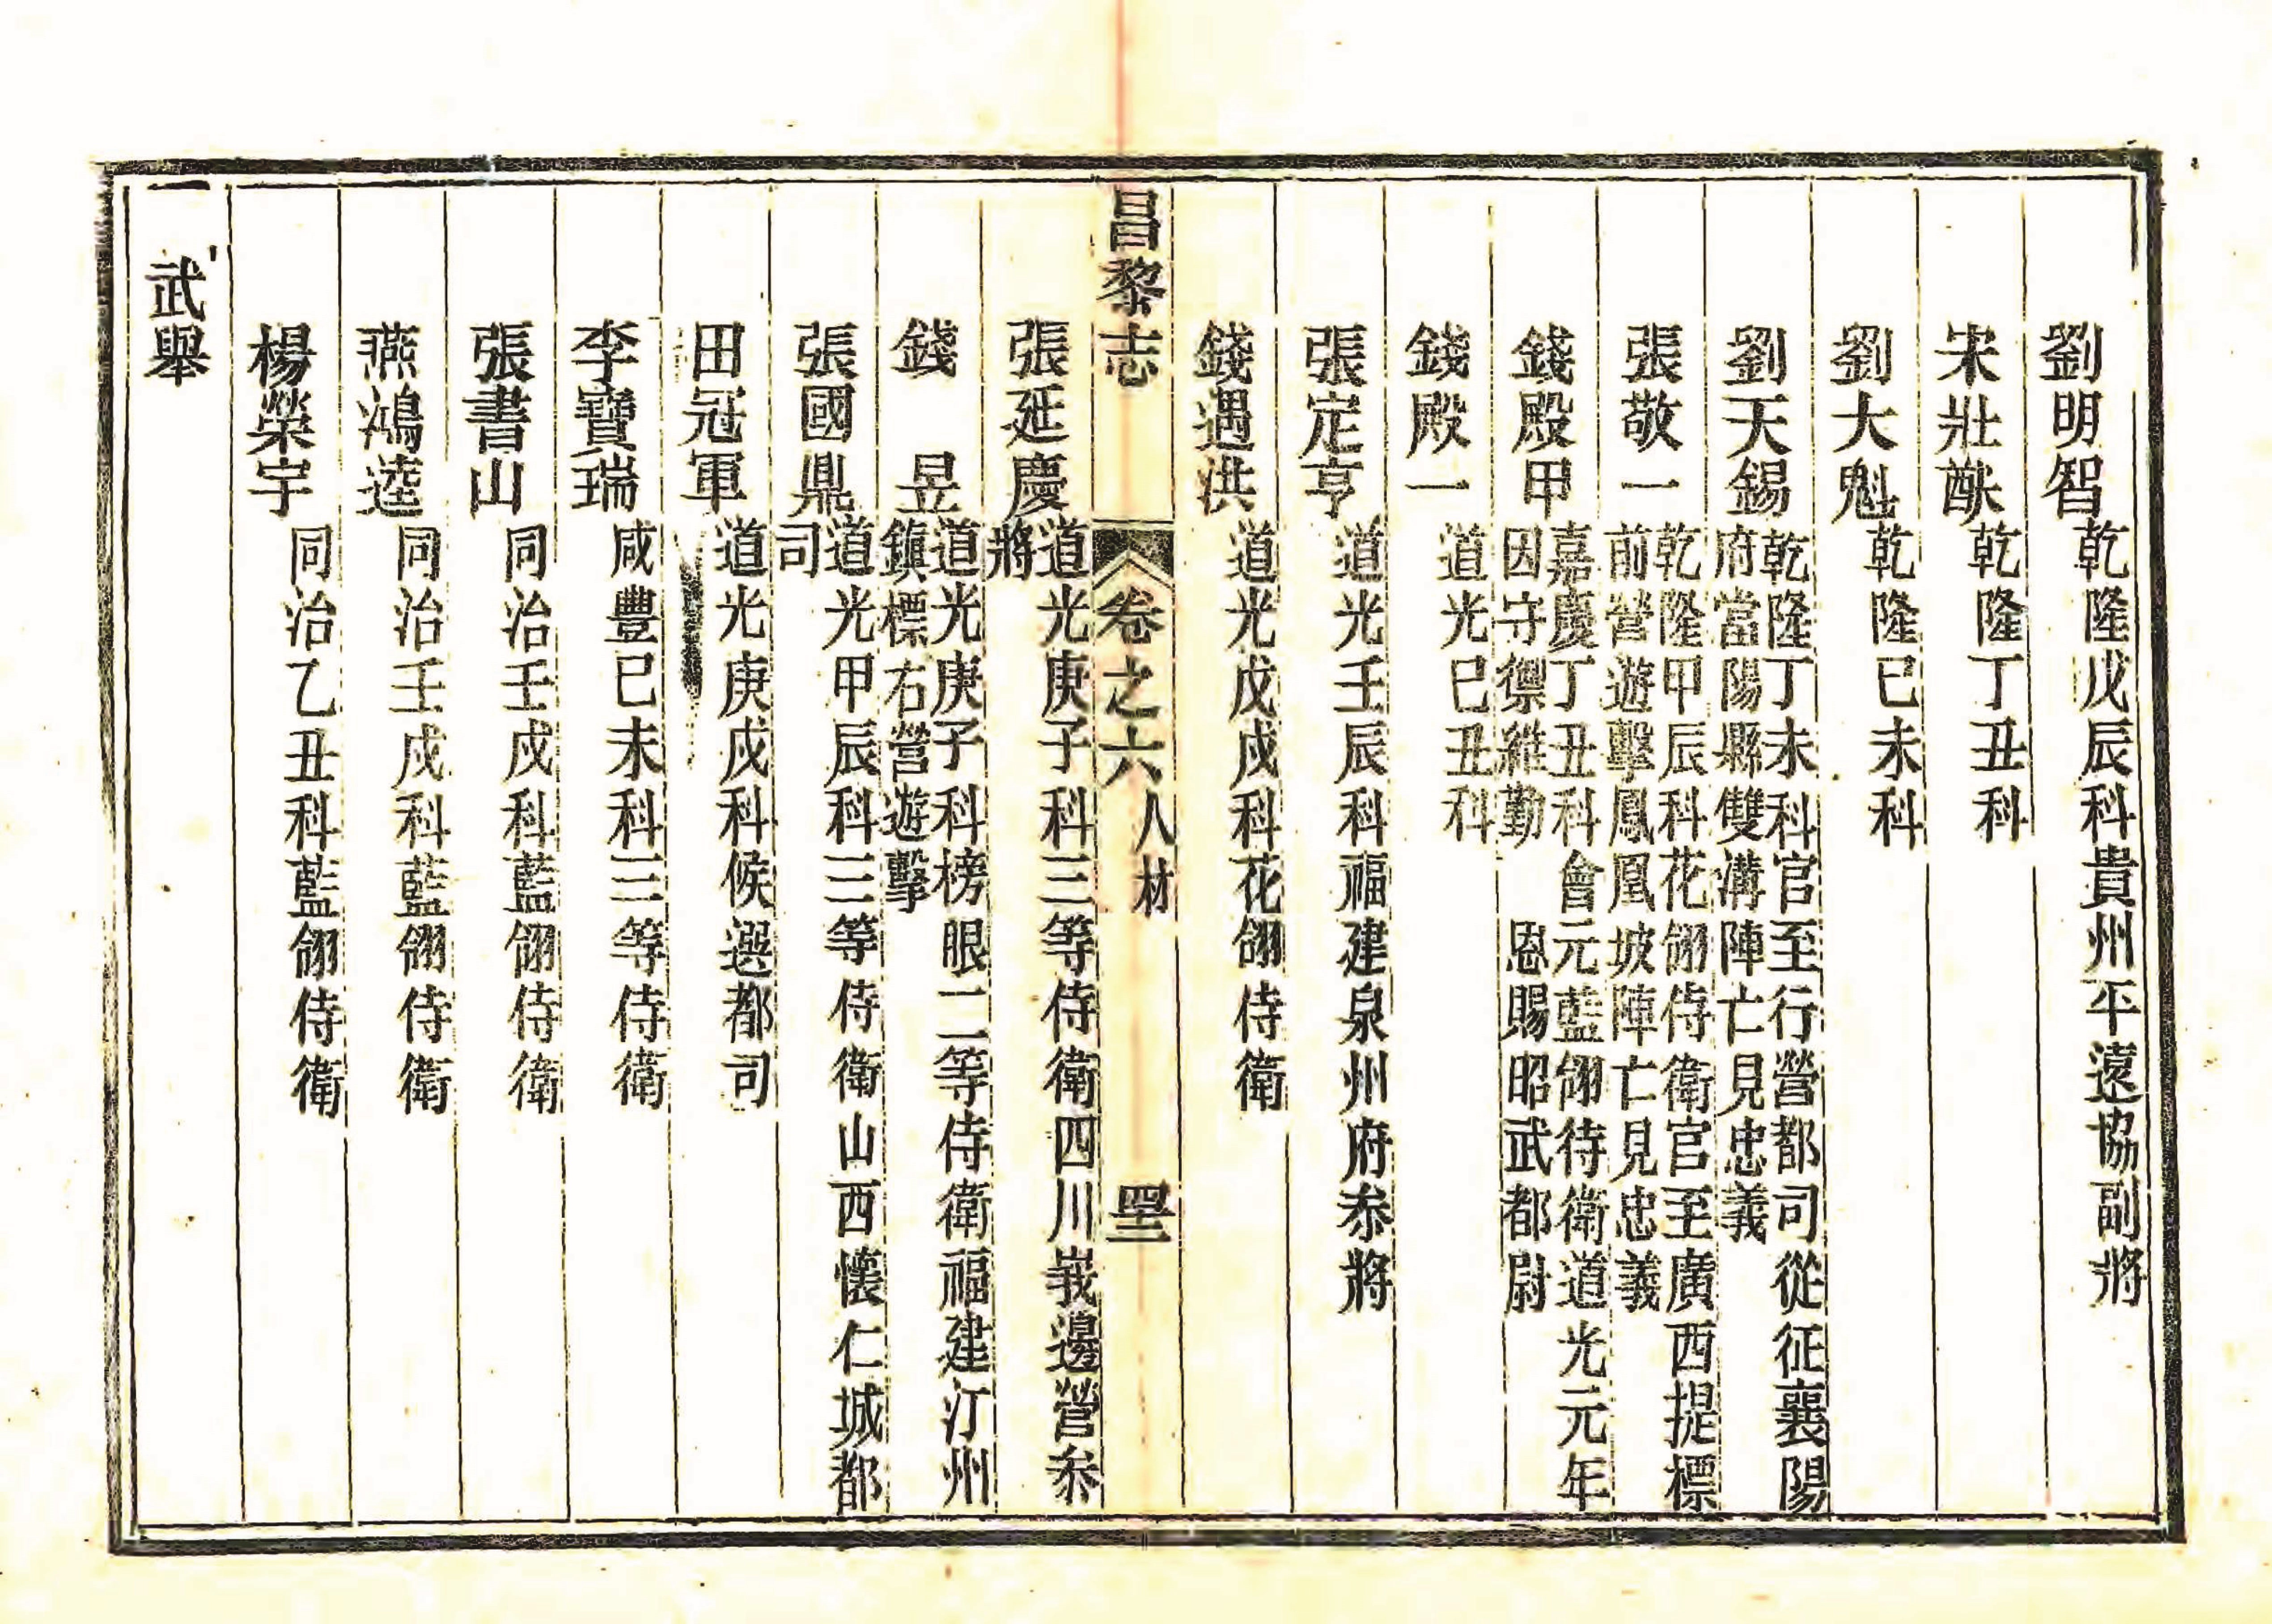 劉明智 乾隆戊辰科貴州平遠協副將
宋壯猷 乾隆丁丑科
劉大魁 乾隆己未科
劉天錫 乾隆丁未科官至行營都司從征襄陽
府當陽縣雙溝陣亡見忠義
張敬一 乾隆甲辰科花翎侍衛官至廣西提標
前營遊擊鳳凰坡陣亡見忠義
錢殿甲 嘉慶丁丑科會元藍翎待衛道光元年
因守禦維勤 恩賜昭武都尉
錢殿一 道光己丑科
張定亨 道光壬辰科福建泉州府叅將
錢遇洪 道光戊戌科花翎侍衛
昌黎志 卷之六 人材 罜
張延慶 道光庚子科三等侍衛四川峩邊營叅
將
錢 昱 道光庚子科榜眼二等侍衛福建汀州
鎮標右營遊擊
張國鼎 道光甲辰科三等侍衛山西懷仁城都
司
田冠軍 道光庚戌科候選都司
李寶瑞 咸豐己未科三等侍衛
張書山 同治壬戌科藍翎侍衛
燕鴻逵 同治壬戌科藍翎侍衛
楊榮宇 同治乙丑科藍翎侍衛
武舉